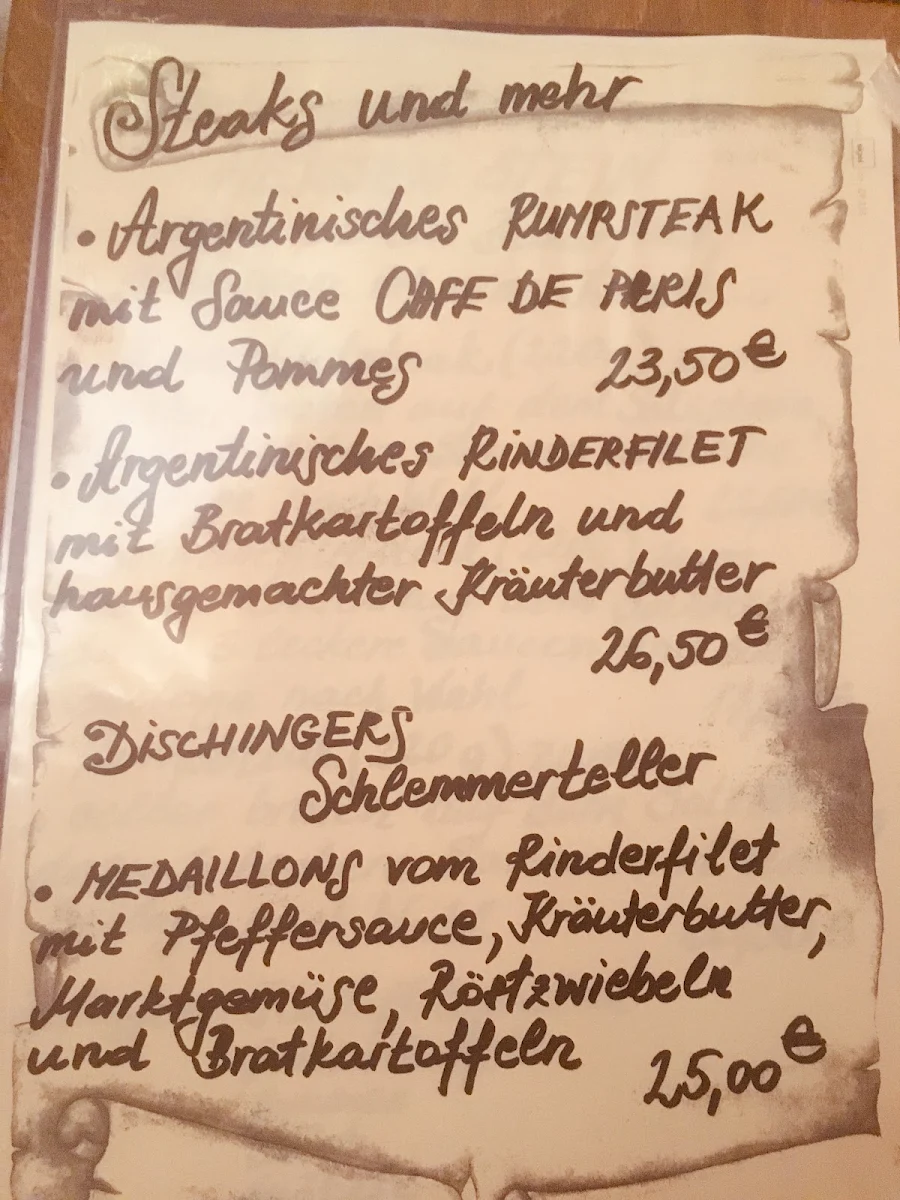 Steaks und mehr
• Argentinisches RUMPSTEAK
mit Sauce CAFE DE PARIS
und Pommes 23,50€
• Argentinisches RINDERFILET
mit Bratkartoffeln und
hausgemachter Kräuterbutter
26,50€
DISCHINGERS
Schlemmerteller
• MEDAILLONS vom Rinderfilet
mit Pfeffersauce, Kräuterbutter,
Marktgemüse, Röstzwiebeln
und Bratkartoffeln 25,00€